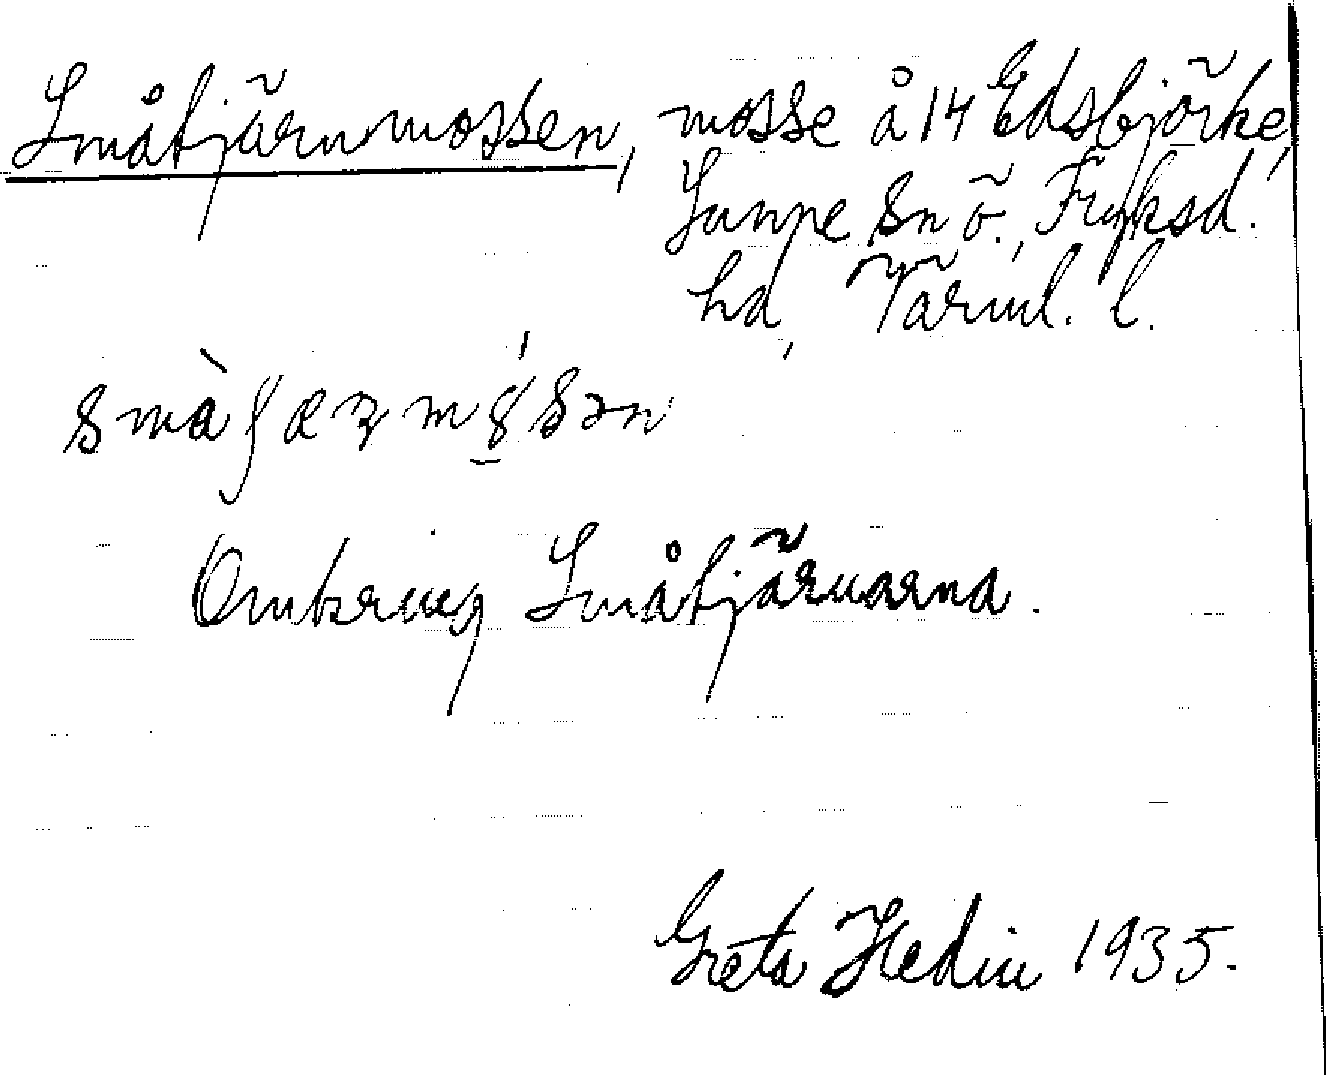 Småtjärnmossen, mosse å 14 Edsbjörke,
Sunne sn ö., Fryksd.
hd, Värml. l.
Omkring Småtjärnarna.
Greta Hedin 1935.